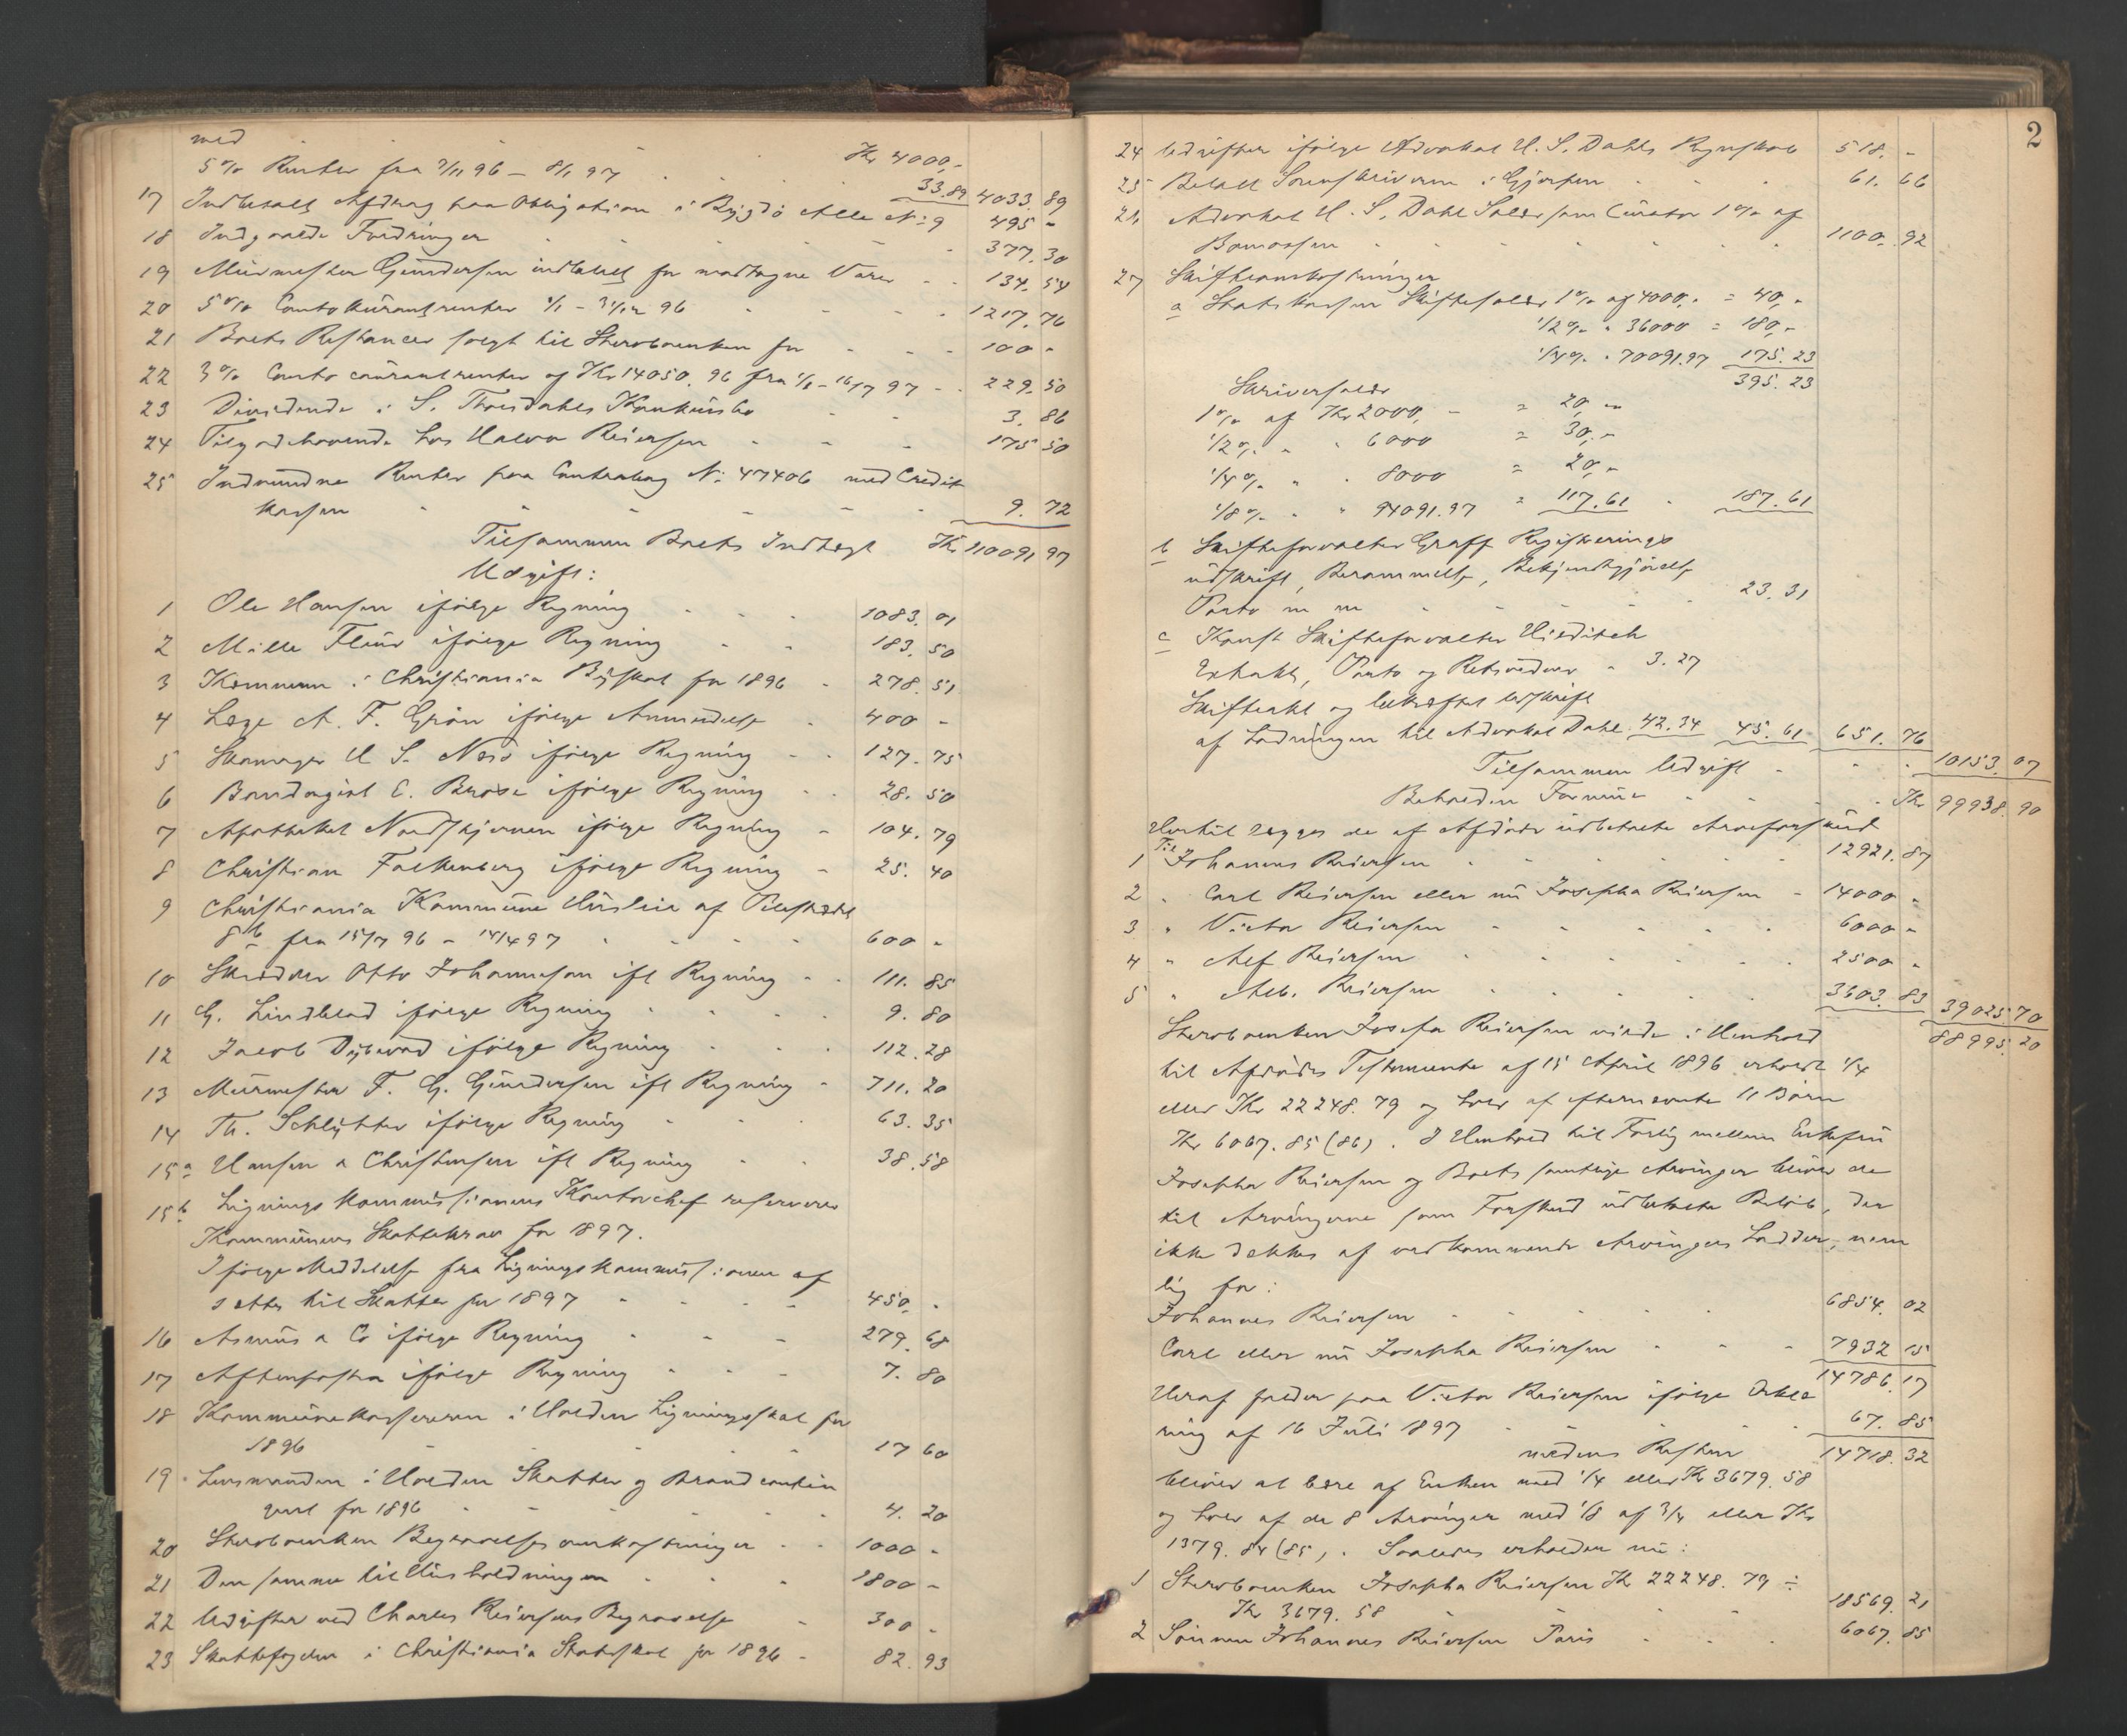 med
5 % Renter fra 9/11 96 – 8/1 97 . . . Kr 4000,-
33.89 4033. 89
17 Indbetalt Afdrag paa Obligation i Bygdö Alle No 9 495 -
18 Indgaaede Fordringer 377. 30
19 Muurmester Gundersen indbetalt for modtagne Varer 134. 54
20 5 % Contokurantrenter 1/1 – 31/12 96 1217. 76
21 Boets Restancer solgt til Sterboenken for 100 -
22 3 % Conto courantrenter af Kr 14050. 96 fra 1/1 – 16/7 97 229. 50
23 Dividende i S. Thorsdahls Konkursbo 3. 86
24 Tilgodehavende hos Halvor Reiersen 175 50
25 Indvundne Renter paa Contrabog No 47406 med Credit
kassen 9. 72
Tilsammen Boets Indtægt Kr 110091 97
Udgift:
1 Ole Hansen ifölge Regning 1083. 01
2 Mille Fleur ifölge Regning 183. 50
3 Kemneren i Christiania Byskat for 1896 278. 51
4 Læge A. F. Grön ifölge Anmeldelse 400 -
5 Skomager H S. Næs ifölge Regning 127. 75
6 Bandagist C. Brose ifölge Regning 28. 50
7 Apotheket Nordstjernen ifölge Regning 104. 79
8 Christian Falkenberg ifölge Regning 25. 40
9 Christiania Kommune Husleie af Pilestrædet
8b fra 15/7 96 – 14/4 97 600 -
10 Skrædder Otto Johannesen ifl Regning 111. 85
11 G. Lindblad ifölge Regning 9. 80
12 Jacob Dybwad ifölge Regning 112. 28
13 Muurmester F. G. Gundersen ifl Regning 711. 20
14 Th. Schlytter ifölge Regning 63. 35
15a Hansen & Christensen ifl Regning 38. 58
15b Lignings kommissionens Kontorchef reserverer
Kommunens Skattekrav for 1897.
Ifölge Meddelelse fra Ligningskommissionen af
sættes til Skatter for 1897 450. -
16 Asmus & Co ifölge Regning 279. 68
17 Aftenposten ifölge Regning 7. 80
18 Kommunekassereren i Holden Ligningsskat for
1896 17 60
19 Lensmanden i Holden Skatter og Brandcontin
gent for 1896 4. 20
20 Sterboenken Begravelses omkostninger 1000 -
21 Den samme til Husholdningen 1800 -
22 Udgifter ved Charles Reiersens Begravelse 300 -
23 Skattefogden i Christiania Statsskat for 1896 82. 93
2
24 Udgifter ifölge Advokat H. S. Dahls Regnskab 518. -
25 Betalt Sorenskriveren i Gjerpen 61. 66
26 Advokat H. S. Dahl Salær som Curator 1 % af
Bomassen 1100. 92
27 Skifteomkostninger
a Statskassen Skiftesalær 1 % af 4000. = 40. -
1/2 % " 36000 = 180,-
1/4 % " 70091.97 175. 23
395. 23
Skriversalær
1 % af Kr 2000. - = 20 -
1/2 % " " 6000 = 30. -
1/4 % " " 8000 = 20 -
1/8 % " " 94091.97 = 117.61 187.61
b Skifteforvalter Graff Registrerings
udskrift, Berammelse, Bekjendtgjörelse
Porto m m 23. 31
c Konst Skifteforvalter Hilditch
Extrakt, Porto og Retsvidner 3. 27
Skifteakt og bekræftet Udskrift
af Lodningen til Advokat Dahl 42.34 45. 61 651. 76
Tilsammen Udgift 10153. 07
Beholden Formue Kr 99938. 90
Hertil lægges de af Afdöde udbetalte Arveforskud
1 Til Johannes Reiersen 12921. 87
2 " Carl Reiersen eller nu Josepha Reiersen 14000 -
3 " Victor Reiersen 6000 -
4 " Alf Reiersen 2500 -
5 " Alb. Reiersen 3603. 83 39025 70
88995. 20
Sterboenken Josefa Reiersen vilde i Henhold
til Afdödes Testamente af 15 April 1896 erholdt 1/4
eller Kr 22248. 79 og hver af efternævnte 11 Börn
Kr 6067. 85 (86). I Henhold til Forlig mellem Enkefru
Josepha Reiersen og Boets samtlige Arvinger bliver de
til Arvingerne som Forskud udbetalte Belöb, der
ikke dækkes af vedkommende Arvingers Lodder, nem
lig for:
Johannes Reiersen 6854. 02
Carl eller nu Josepha Reiersen 7932 15
14786. 17
Heraf falder paa Victor Reiersen ifölge Erklæ
ring af 16 Juli 1897 67. 85
medens Resten 14718. 32
bliver at bære af Enken med 1/4 eller Kr 3679. 58
og hver af de 8 Arvinger med 1/8 af 3/4 eller Kr
1379. 84 (85). Saaledes erholder nu:
1 Sterboenken Josepha Reiersen Kr 22248. 79 ÷
Kr 3679. 58 18569. 21
2 Sönnen Johannes Reiersen Paris 6067. 85